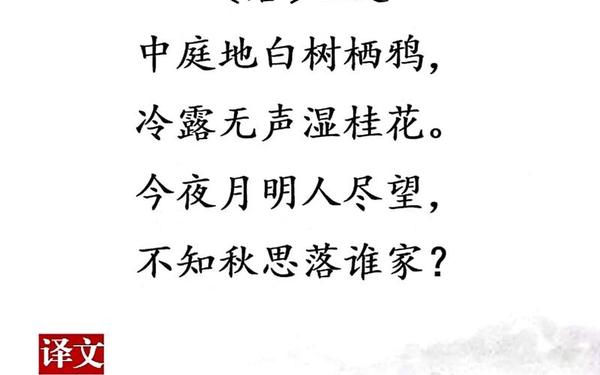 中庭地白树栖鸦，
冷露无声湿桂花。
今夜月明人尽望，
不知秋思落谁家？
译文